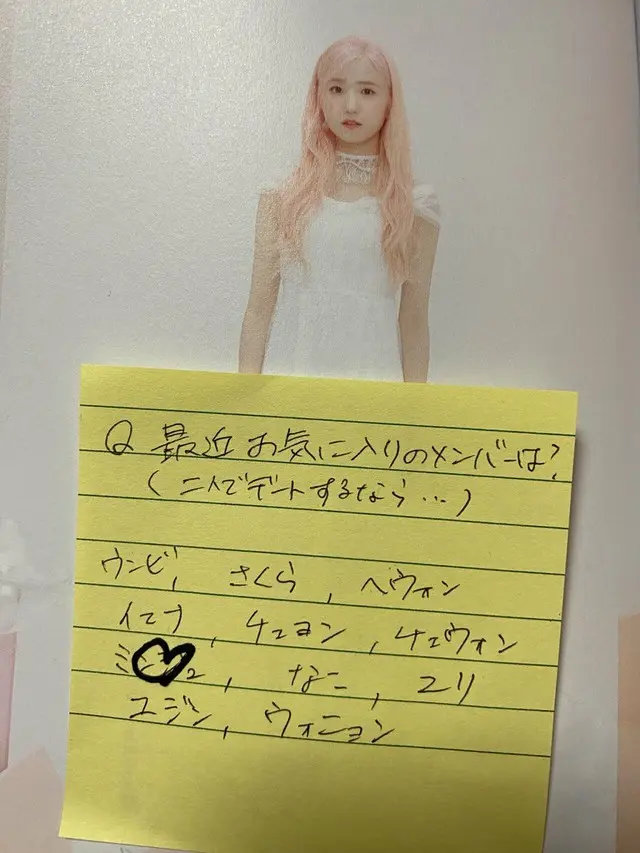 Q 最近お気に入りのメンバーは?
(二人でデートするなら…)
ウンビ, さくら, ヘウォン
イェナ, チェヨン, チェウォン
, なこ, ユリ
ユジン, ウォニョン